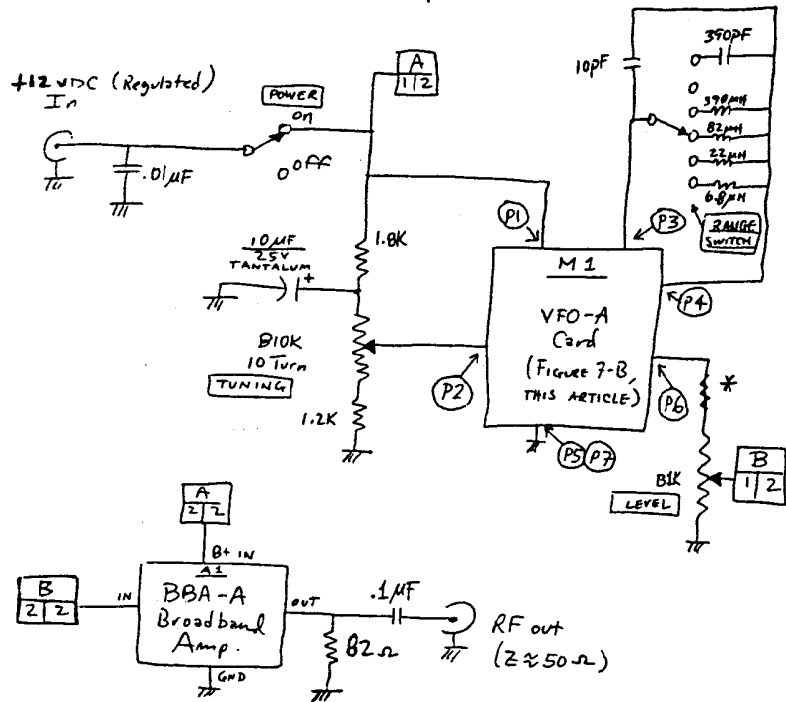 +12 VDC (Regulated)
In
.01µF
POWER
on
off
A
1 2
10pF
390pF
390µH
82µH
22µH
6.8µH
RANGE
SWITCH
1.8K
10µF
25V
TANTALUM
+
B10K
10 Turn
TUNING
1.2K
P1
P3
P4
M1
VFO-A
Card
(FIGURE 7-B,
THIS ARTICLE)
P2
P6
P5 P7
*
B1K
LEVEL
B
1 2
A
2 2
B+ IN
B
2 2
IN
A1
BBA-A
Broadband
Amp.
GND
OUT
82Ω
.1µF
RF out
(Z≈50Ω)